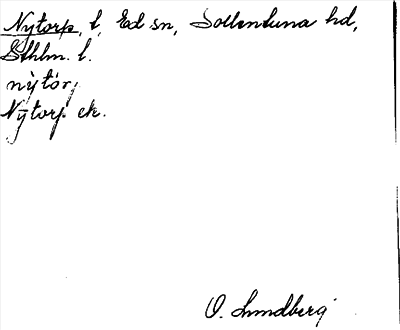 Nytorp, t, Ed sn, Sollentuna hd,
Sthlm. l.
nỳtór,
Nytorp ek.
O. Lundberg